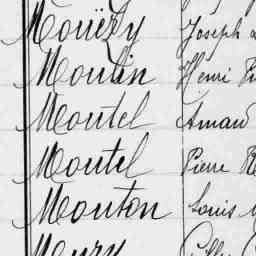 Mouëzy Joseph
Moulin Henri
Moutel Amand
Moutel Pierre
Mouton Louis
Moury